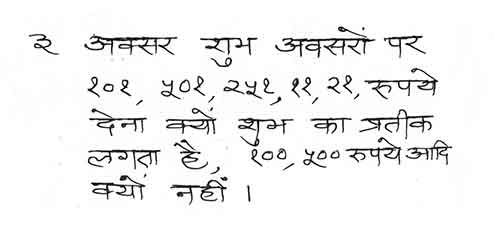 ३ अक्सर शुभ अवसरों पर
१०१, ५०१, २५१, ११, २१, रुपये
देना क्यों शुभ का प्रतीक
लगता है, १००, ५०० रुपये आदि
क्यों नहीं ।